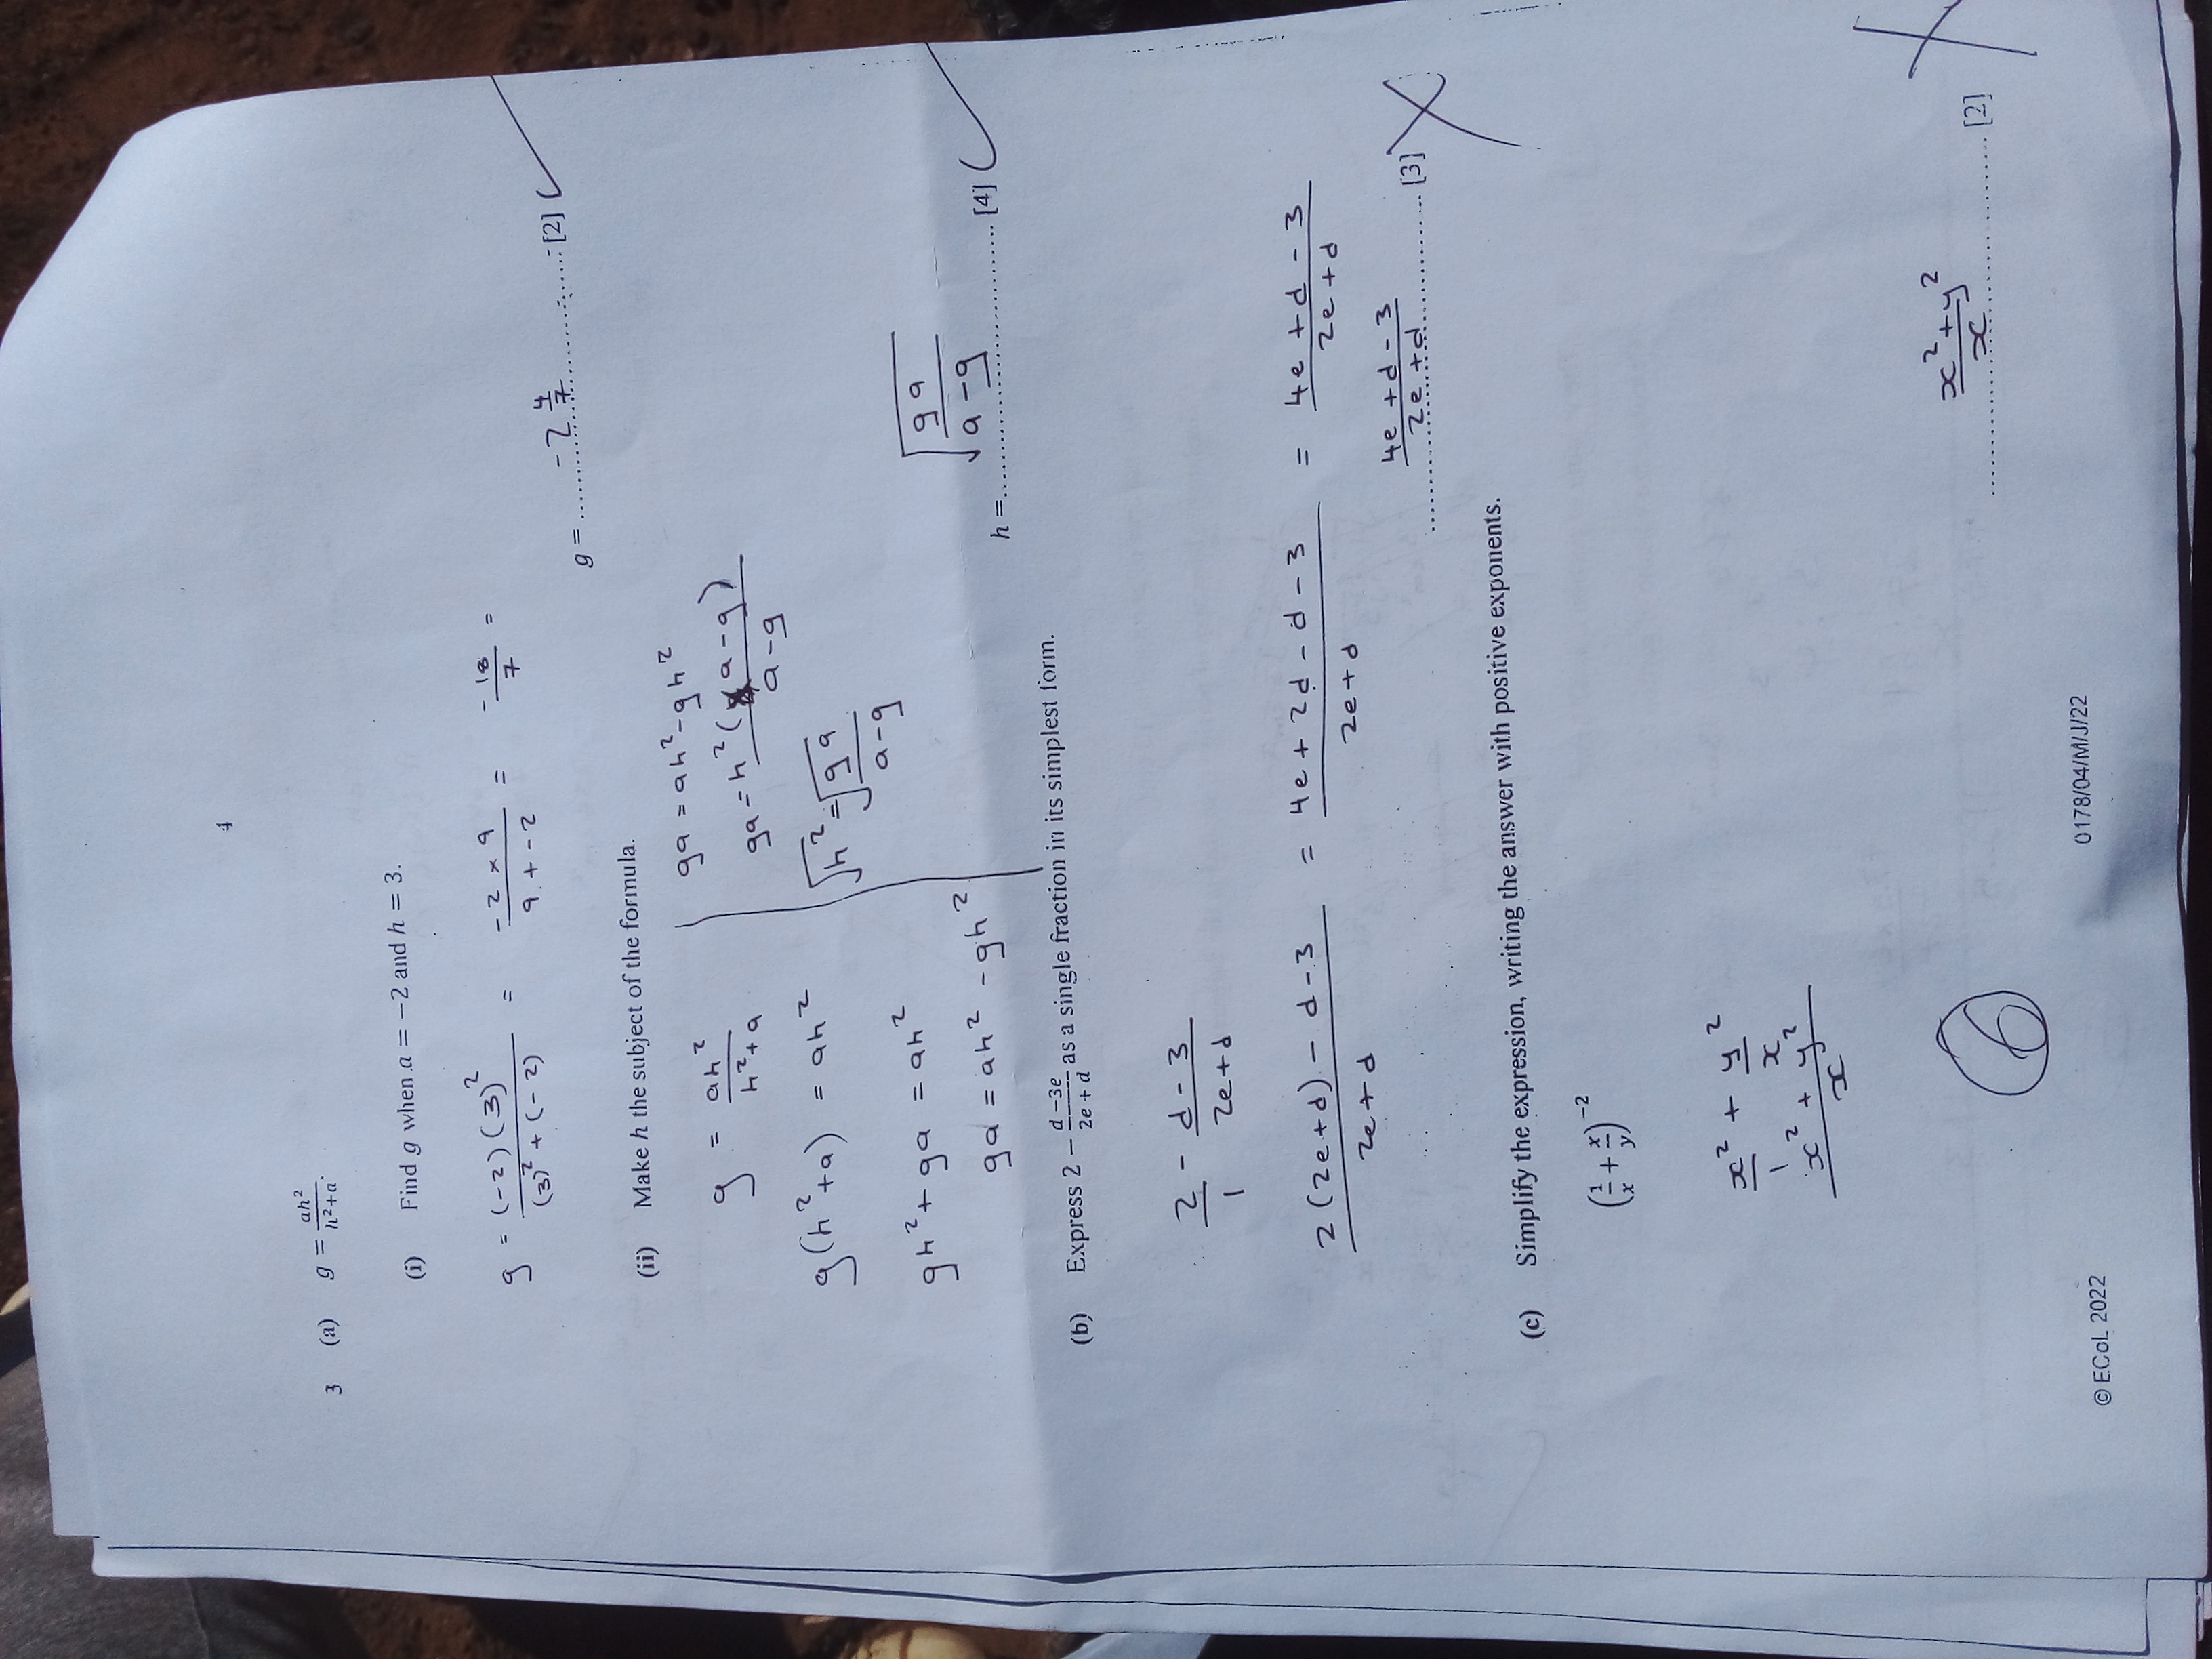 4
3 (a) g = ah²/(h²+a).
(i) Find g when a = −2 and h = 3.
g = (-2)(3)²/((3)² + (-2)) = -2 × 9/(9 + -2) = -18/7 =
g = -2 4/7 [2]
(ii) Make h the subject of the formula.
g = ah²/(h²+a)
g(h²+a) = ah²
gh² + ga = ah²
ga = ah² - gh²
ga = ah² - gh²
ga = h²(a-g)/(a-g)
√h² = √(ga/(a-g))
h = √(ga/(a-g)) [4]
(b) Express 2 − (d −3e)/(2e + d) as a single fraction in its simplest form.
2/1 - (d - 3)/(2e+d)
(2(2e+d) - d-3)/(2e+d) = (4e + 2d - d - 3)/(2e+d) = (4e + d - 3)/(2e+d)
(4e + d - 3)/(2e+d) [3]
(c) Simplify the expression, writing the answer with positive exponents.
(1/x + x/y)⁻²
x²/1 + y²/x
(x² + y²)/x
(x²+y²)/x [2]
6
© ECoL 2022
0178/04/M/J/22